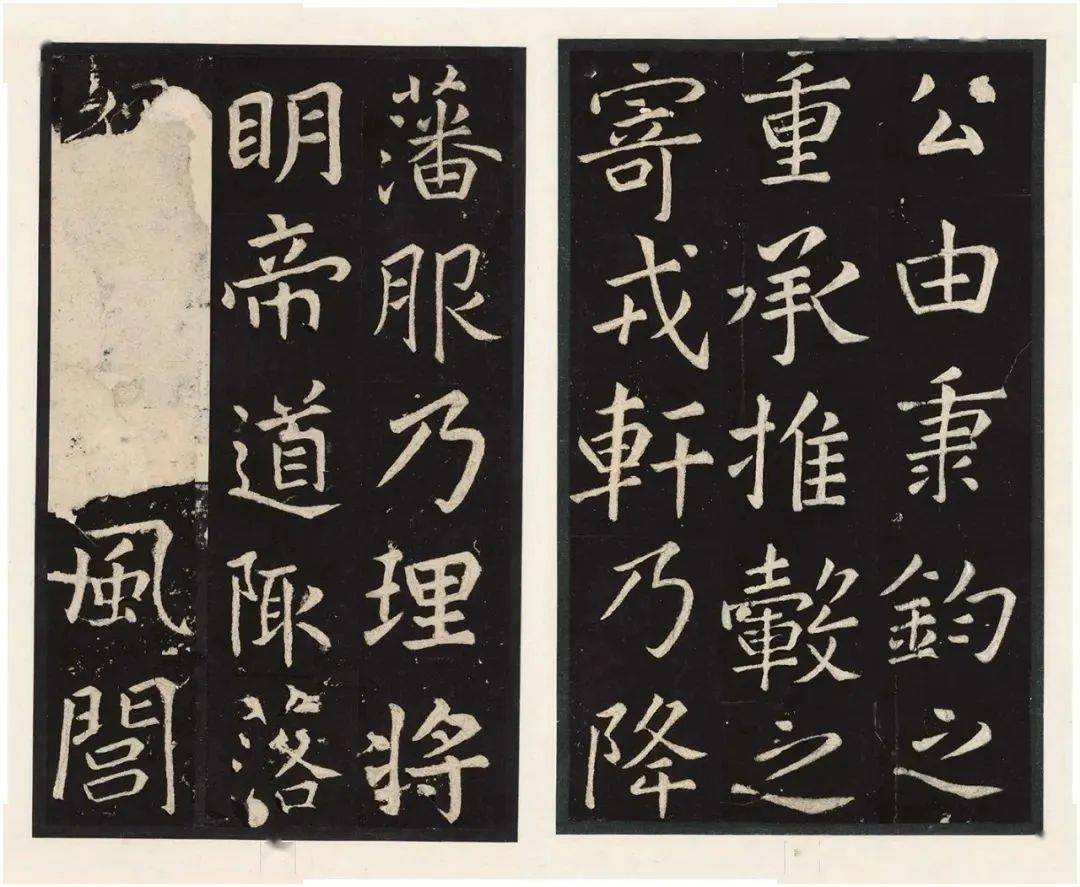 公由秉鈞之
重承推轂之
寄戎軒乃降
藩服乃理將
眀帝道陬落
風閭